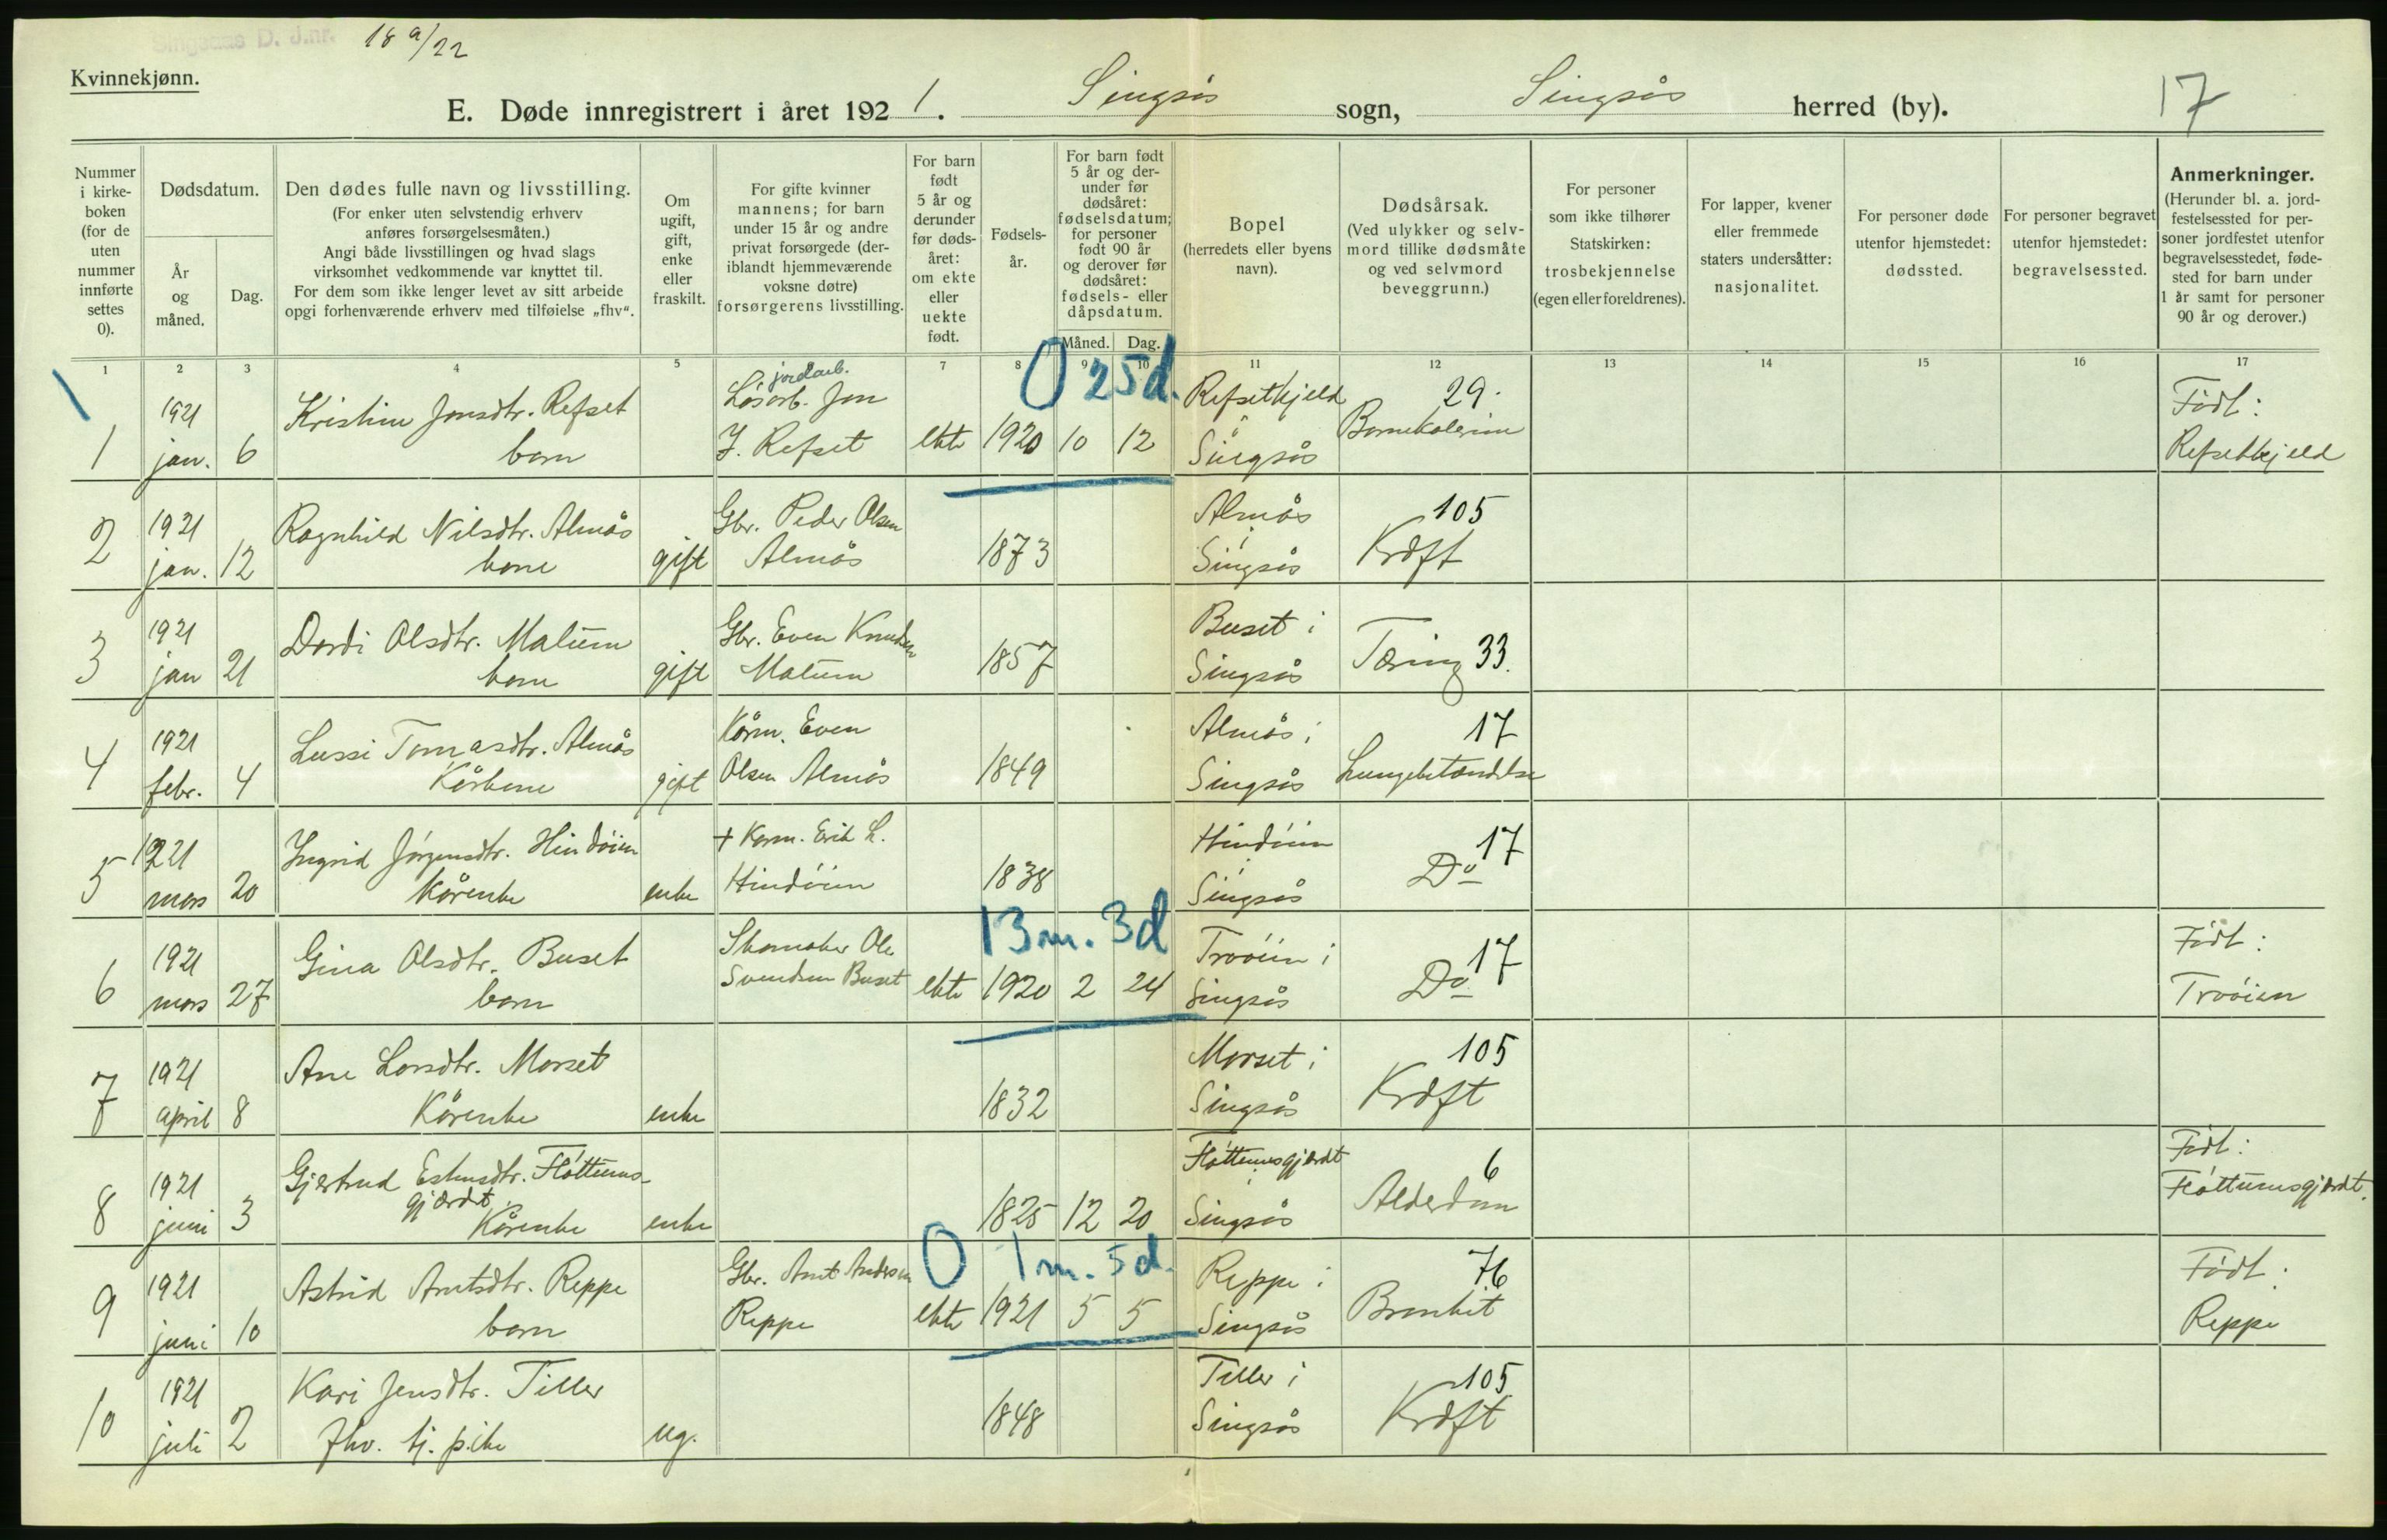 Singsaas D. J.nr. 18 a/22
Kvinnekjønn.
E. Døde innregistrert i året 192 1. Singsås sogn, Singsås herred (by). 17
Nummer i kirke-boken (for de uten nummer innførte settes 0).
Dødsdatum.
År og måned.
Dag.
Den dødes fulle navn og livsstilling.
(For enker uten selvstendig erhverv anføres forsørgelsesmåten.)
Angi både livsstillingen og hvad slags virksomhet vedkommende var knyttet til.
For dem som ikke lenger levet av sitt arbeide opgi forhenværende erhverv med tilføielse „fhv“.
Om ugift, gift, enke eller fraskilt.
For gifte kvinner mannens; for barn under 15 år og andre privat forsørgede (deriblandt hjemmeværende voksne døtre) forsørgerens livsstilling.
For barn født 5 år og derunder før døds-året: om ekte eller uekte født.
Fødsels-år.
For barn født 5 år og der-under før dødsåret: fødselsdatum; for personer født 90 år og derover før dødsåret: fødsels- eller dåpsdatum.
Måned. Dag.
Bopel
(herredets eller byens navn).
Dødsårsak.
(Ved ulykker og selv-mord tillike dødsmåte og ved selvmord beveggrunn.)
For personer som ikke tilhører Statskirken: trosbekjennelse (egen eller foreldrenes).
For lapper, kvener eller fremmede staters undersåtter: nasjonalitet.
For personer døde utenfor hjemstedet: dødssted.
For personer begravet utenfor hjemstedet: begravelsessted.
Anmerkninger.
(Herunder bl. a. jord-festelsessted for per-soner jordfestet utenfor begravelsesstedet, føde-sted for barn under 1 år samt for personer 90 år og derover.)
1 2 3 4 5 6 7 8 9 10 11 12 13 14 15 16 17
0 25 d.
1 1921 jan. 6 Kristine Jonsdtr. Refset barn Løsarb. jordarb. Jon J. Refset ekte 1920 10 12 Refsetkjeld Singsås 29. Barnekolerine Født: Refsetkjeld
2 1921 jan. 12 Ragnhild Nilsdtr. Almås kone gift Gbr. Peder Olsen Almås 1873 Almås i Singsås 105 Kræft
3 1921 jan 21 Dordi Olsdtr. Matum kone gift Gbr. Even Knudsen Matum 1857 Buset i Singsås Tæring 33.
4 1921 febr. 4 Lussi Tomasdtr. Almås Kårkone gift Kårm. Even Olsen Almås 1849 Almås i Singsås 17 Lungebetændelse
5 1921 mars 20 Ingrid Jørgensdtr. Hindøien Kårenke enke + Kårm. Erik L. Hindøien 1838 Hindøien i Singsås 17 Do
13 m. 3 d
6 1921 mars 27 Gina Olsdtr. Buset barn Skomaker Ole Svendsen Buset ekte 1920 2 24 Trøøien i Singsås 17 Do Født: Trøøien
7 1921 april 8 Ane Larsdtr. Morset Kårenke enke 1832 Morset i Singsås 105 Kræft
8 1921 juni 3 Gjertrud Estensdtr. Fløttums-gjærdt Kårenke enke 1825 12 20 Fløttumsgjærdt i Singsås 6 Alderdom Født: Fløttumsgjærdt.
0 1 m. 5 d.
9 1921 juni 10 Astrid Arntsdtr. Reppe barn Gbr. Arnt Andersen Reppe ekte 1921 5 5 Reppe i Singsås 76 Bronkit Født: Reppe
10 1921 juli 2 Kari Jensdtr. Tiller fhv. tj. pike ug. 1848 Tiller i Singsås 105 Kræft